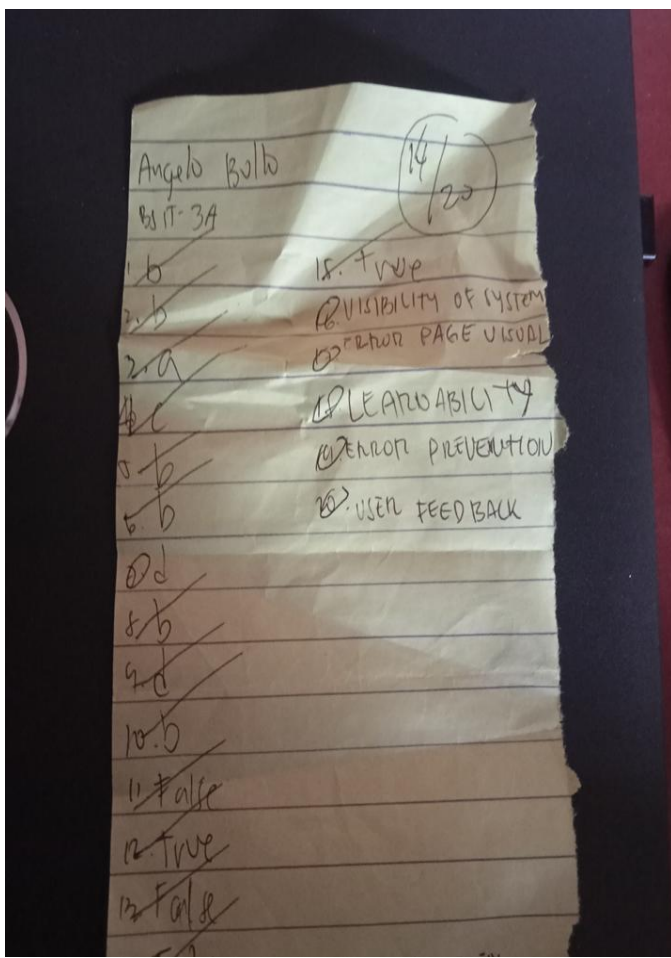 Angelo Bullo
BSIT-3A
14/20
1. b
2. b
3. a
4. c
5. b
6. b
7 d
8. b
9. d
10. b
11. False
12. True
13. False
15. True
16. VISIBILITY OF SYSTEM
17 ERROR PAGE VISUAL
18 LEARNABILITY
19 ERROR PREVENTION
20. USER FEEDBACK